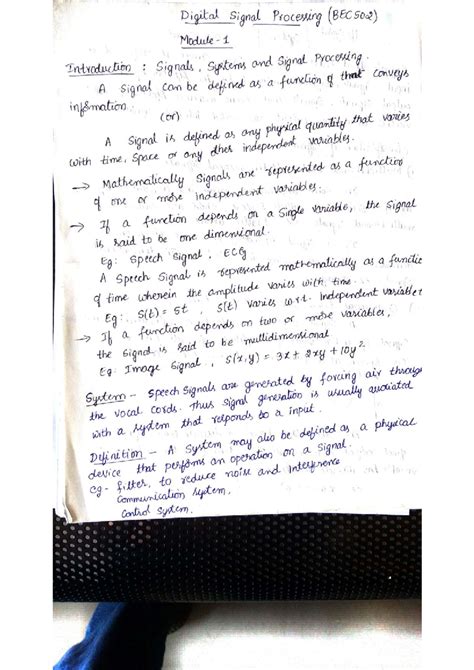 Digital Signal Processing (BEC502)
Module-1
Introduction : Signals, Systems and Signal Processing.
A Signal can be defined as a function of that conveys
information.
(or)
A Signal is defined as any physical quantity that varies
with time, Space or any other independent variables.
→ Mathematically Signals are represented as a function
of one or more independent variables.
→ If a function depends on a Single variable, the Signal
is said to be one dimensional.
Eg: Speech Signal, ECG
A Speech Signal is represented mathematically as a function
of time wherein the amplitude varies with time.
Eg: S(t) = 5t , S(t) varies w.r.t. Independent variable t
→ If a function depends on two or more variables,
the Signal is said to be multidimensional
Eg: Image Signal, S(x,y) = 3x + 2xy + 10y²
System - Speech Signals are generated by forcing air through
the vocal cords. Thus Signal generation is usually
with a system that responds to a input.
Definition - A System may also be defined as a physical
device that performs an operation on a Signal.
eg- filter, to reduce noise and Interference
Communication System,
Control System.